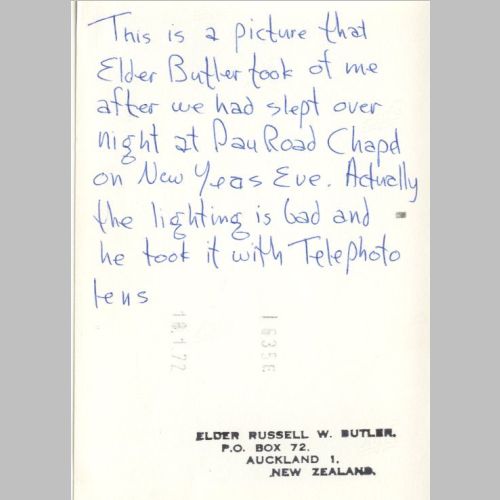 This is a picture that
Elder Butler took of me
after we had slept over
night at Pau Road Chapel
on New Years Eve. Actually
the lighting is bad and
he took it with Telephoto
lens
18.1.72
1635E
ELDER RUSSELL W. BUTLER.
P.O. BOX 72.
AUCKLAND 1.
NEW ZEALAND.